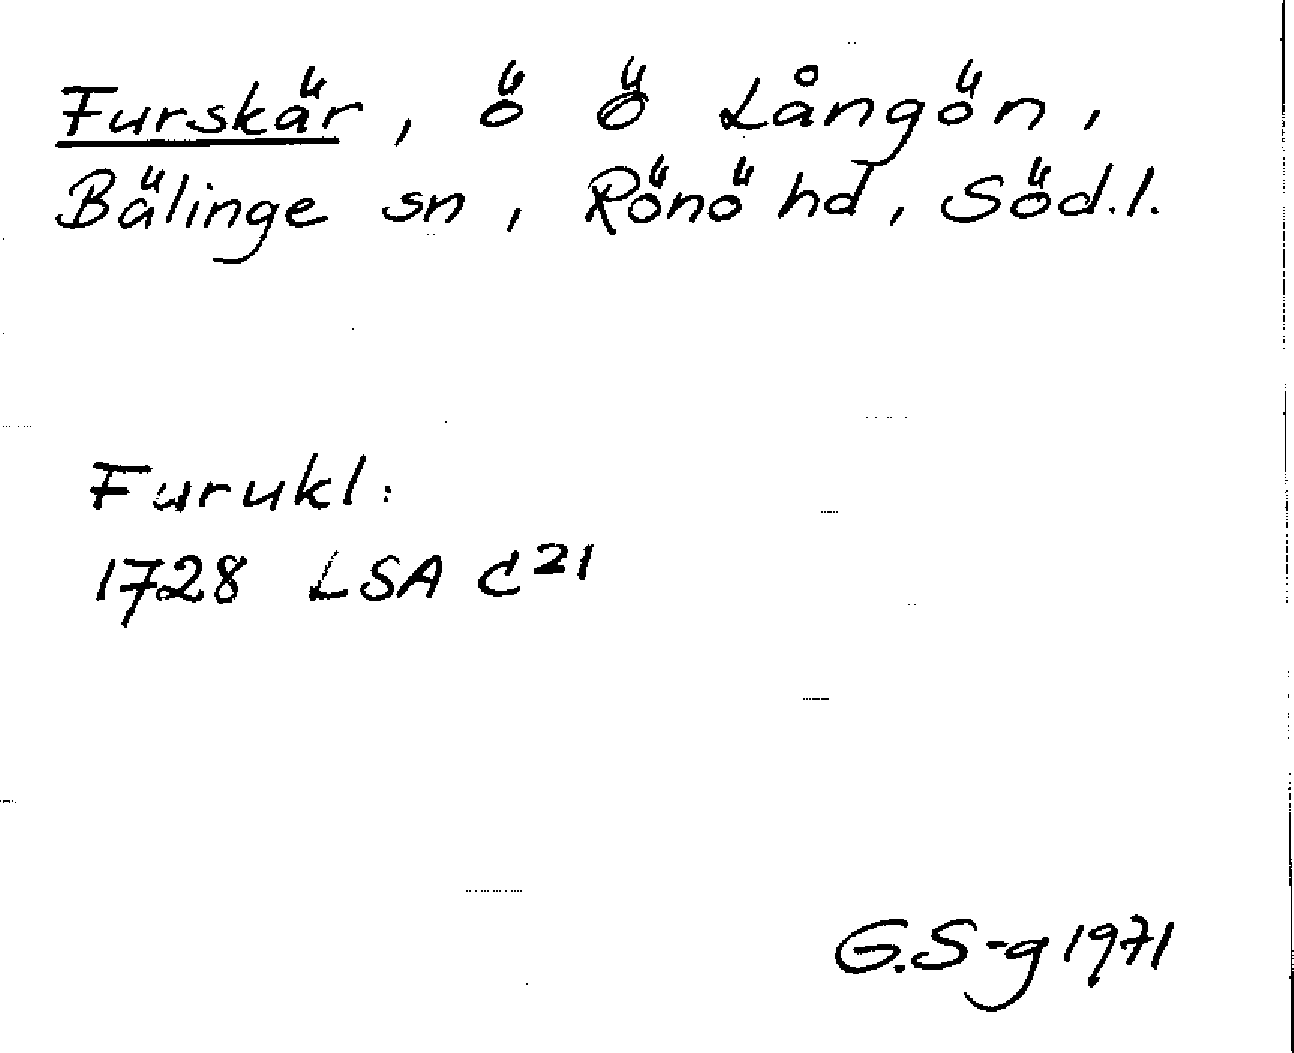 Furskär, ö Ö Långön,
Bälinge sn, Rönö hd, Söd.l.
Furukl:
1728 LSA C²¹
G.S-g 1971